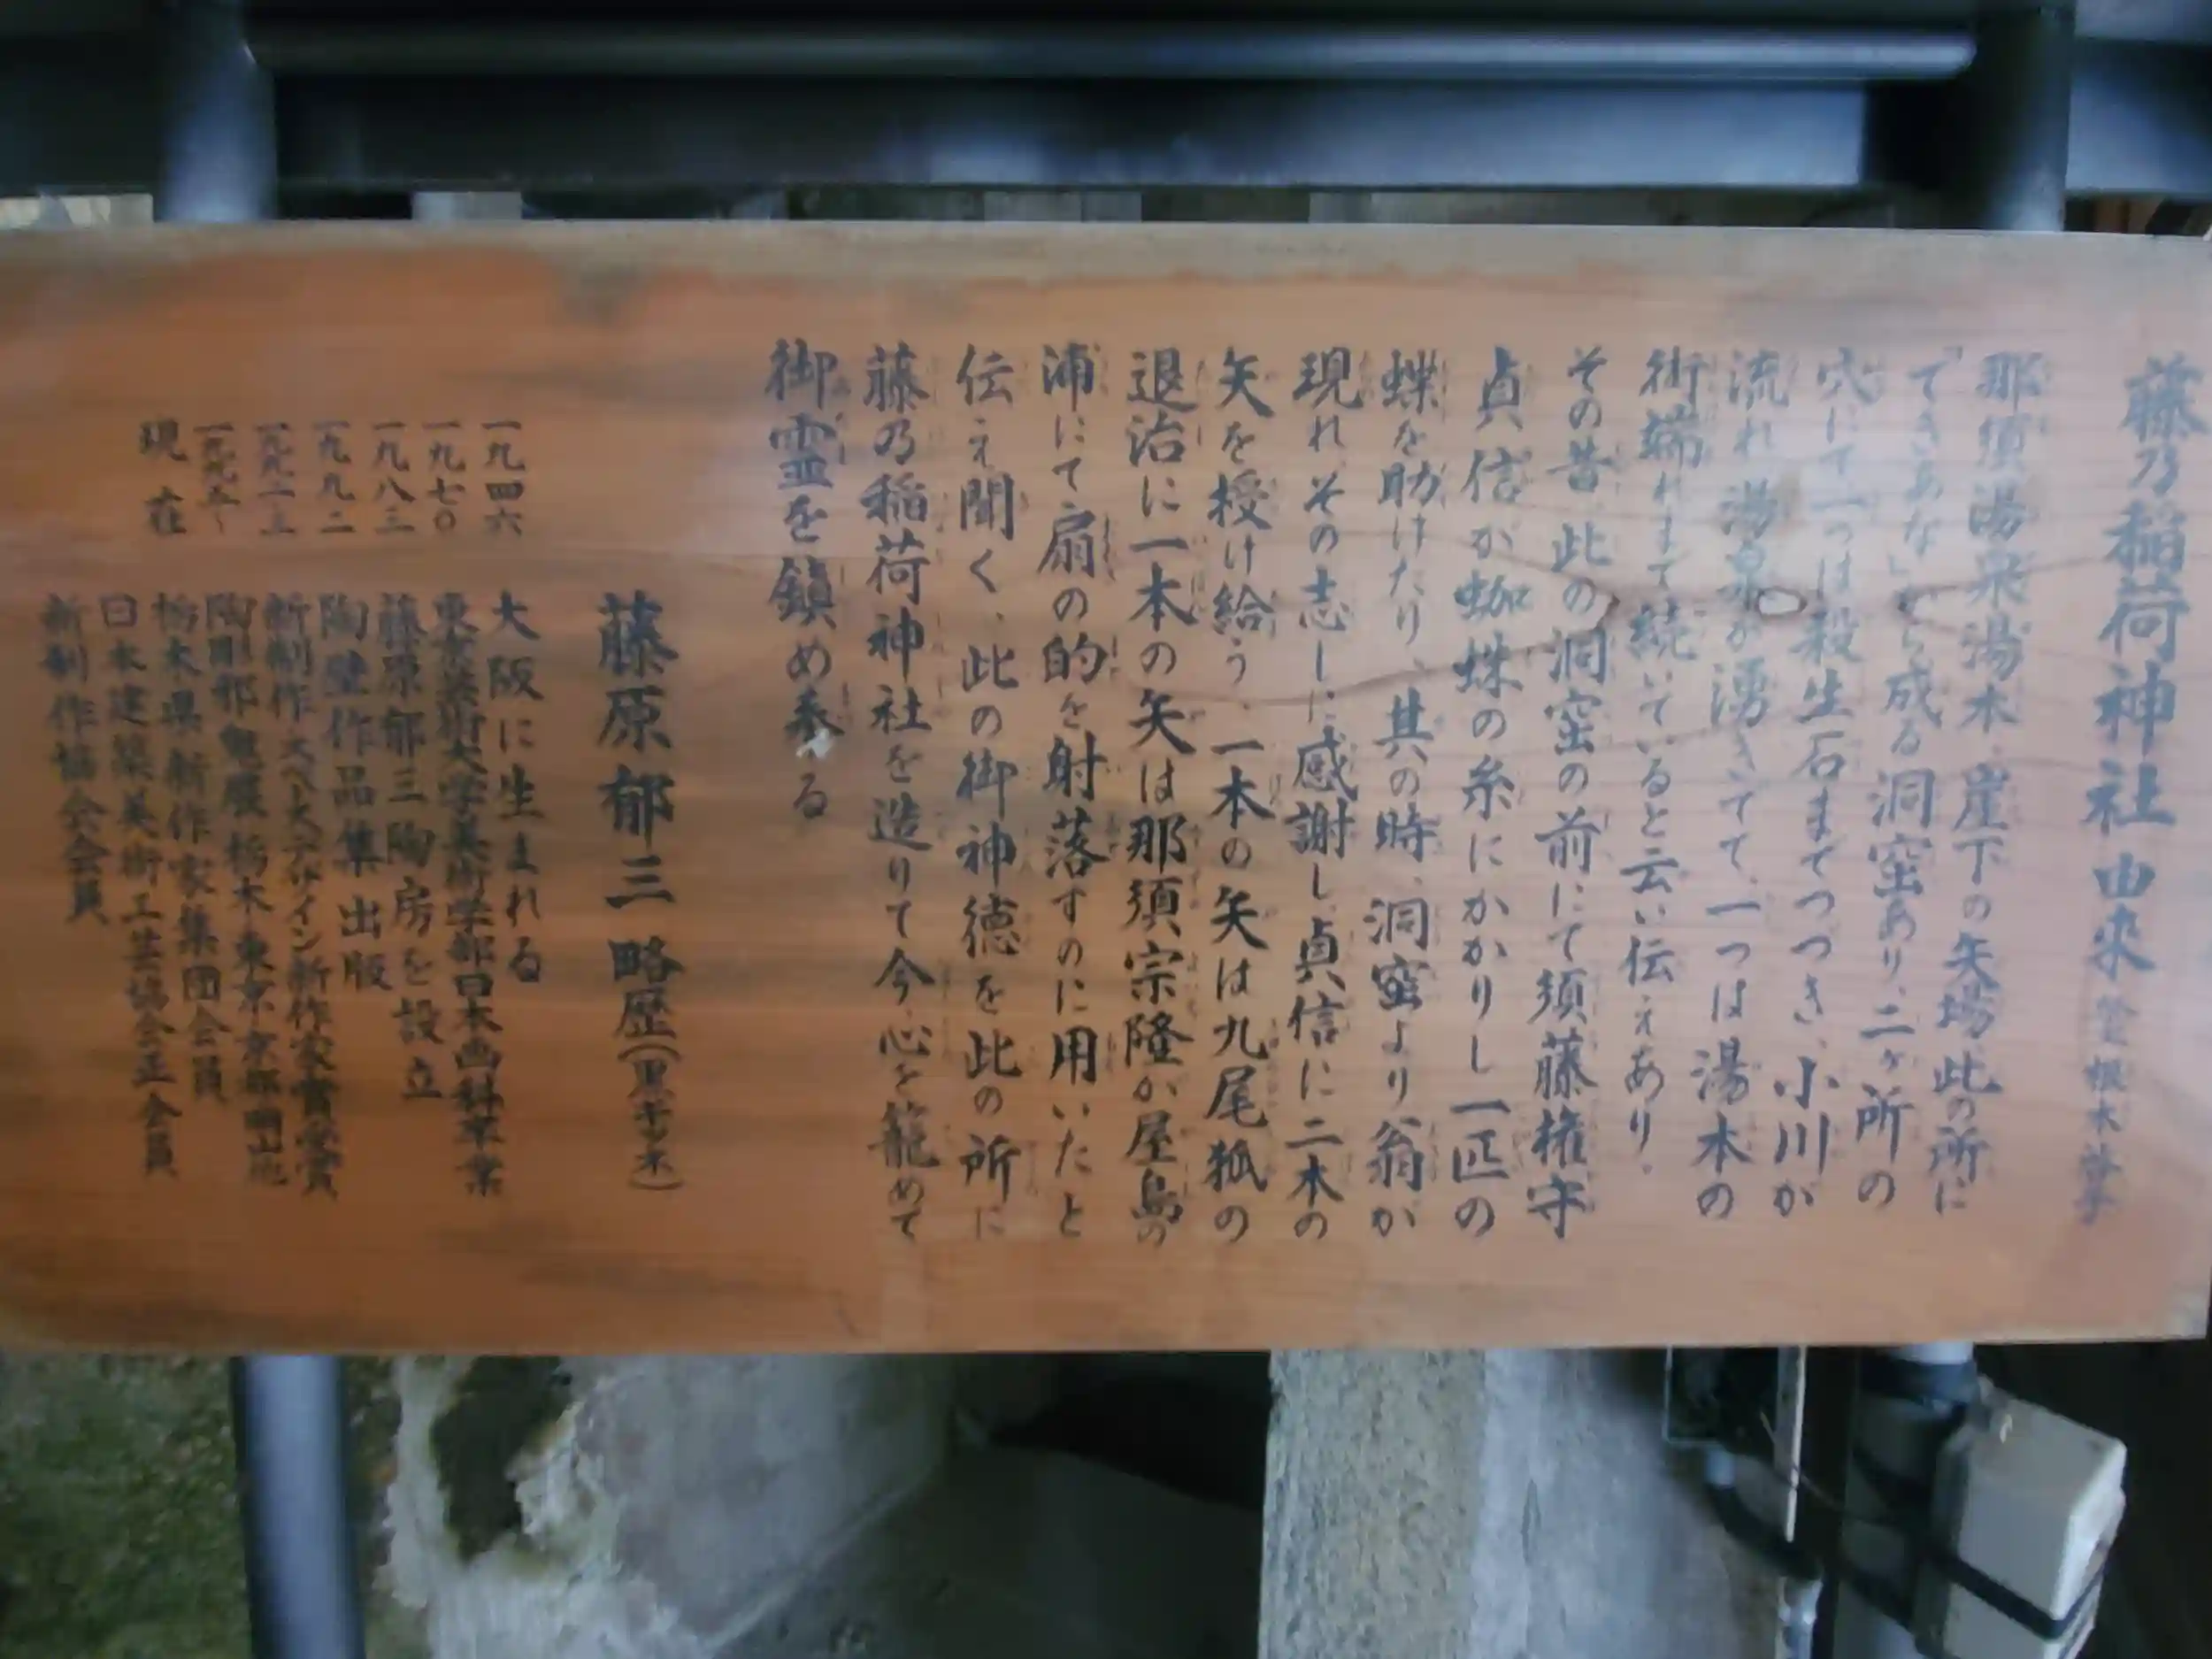 藤乃稲荷神社由来
那須湯泉湯本、崖下の矢場此の所に
「できあな」から成る洞窟あり、二ヶ所の
穴にて一つは殺生石までつづき、小川が
流れ湯泉が湧きてて、一つは湯本の
街端れまで続いていると云い伝えあり。
その昔、此の洞窟の前にて須藤権守
貞信が蜘蛛の糸にかかりし一匹の
蝶を助けたり、其の時、洞窟より翁が
現れ、その志しに感謝し貞信に二本の
矢を授け給う、一本の矢は九尾狐の
退治に一本の矢は那須宗隆が屋島の
浦にて扇の的を射落すのに用いたと
伝え聞く、此の御神徳を此の所に
藤乃稲荷神社を造りて今、心を籠めて
御霊を鎮め奉る
藤原郁三 略歴
一九四六 大阪に生まれる
一九七〇 東京芸術大学美術学部日本画科卒業
一九八三 藤原郁三陶房を設立
一九九二 陶壁作品集出版
新制作 スペースデザイン新作家賞受賞
陶彫邪鬼展 栃木 東京 京都 岡山他
現在 栃木県新作家集団会員
日本建築美術工芸協会正会員
新制作協会会員